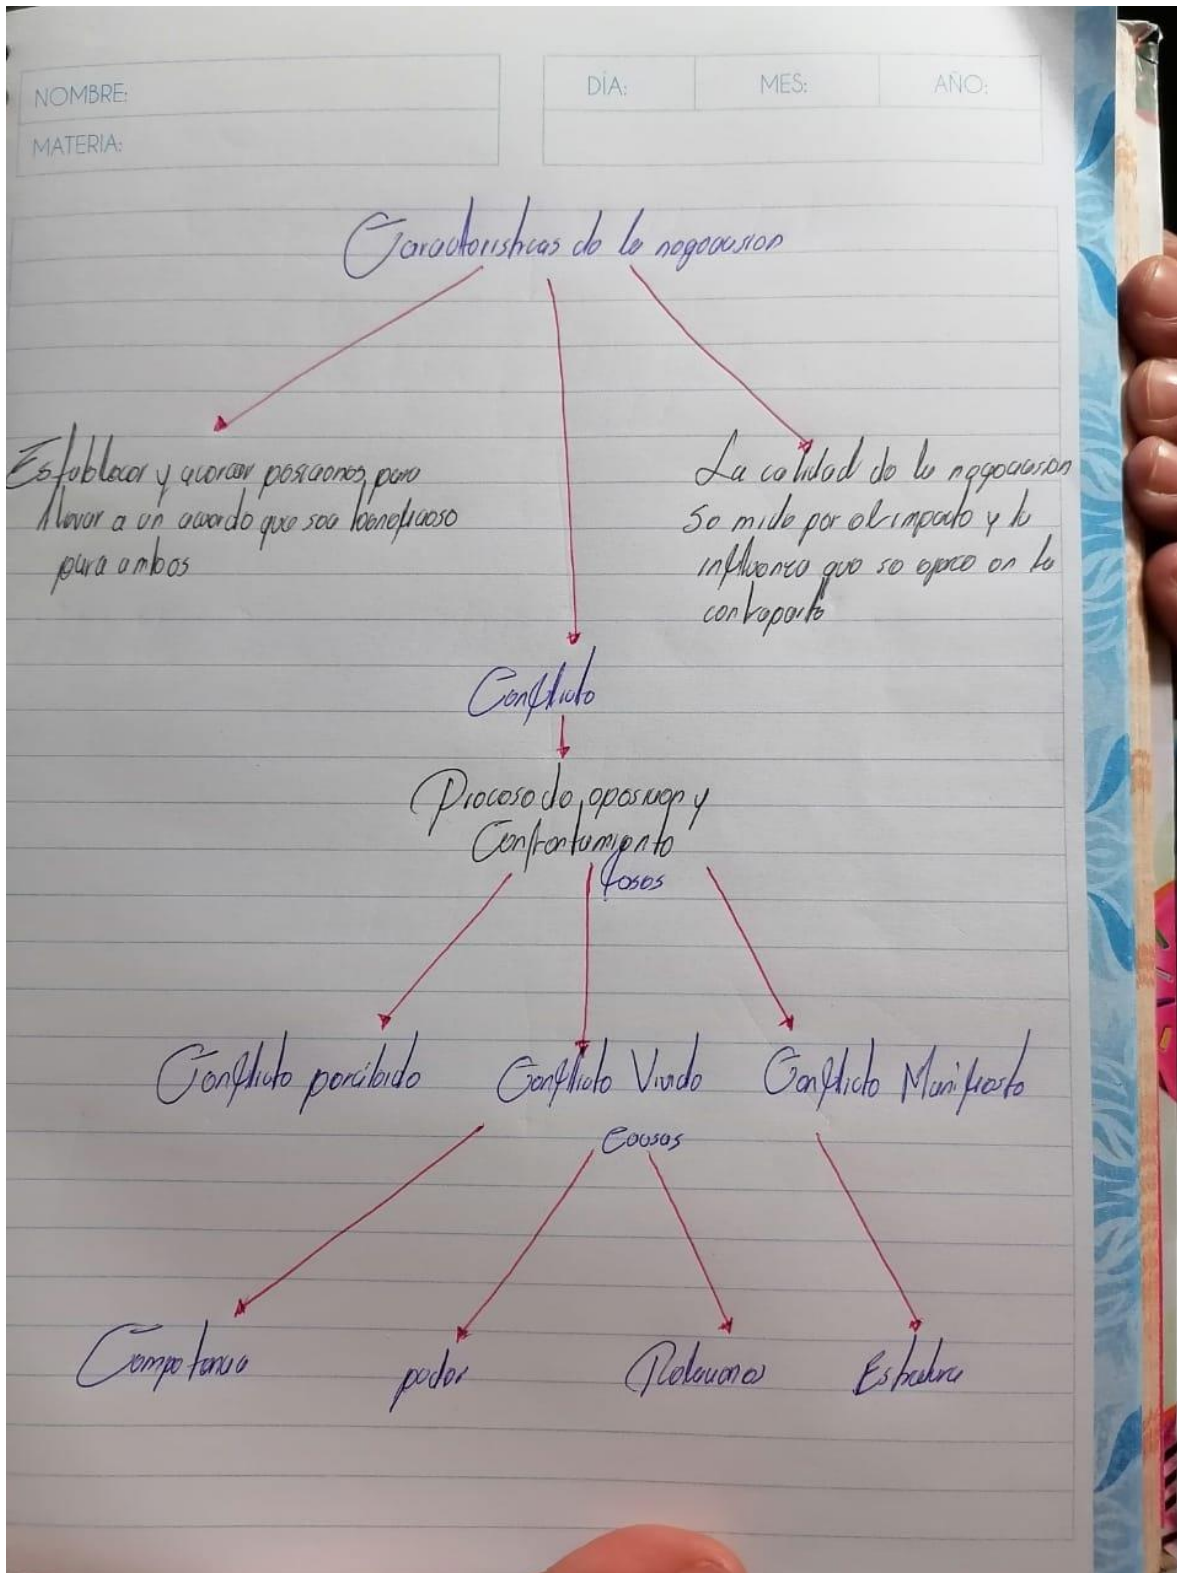 NOMBRE:
DÍA:
MES:
AÑO:
MATERIA:
Caracteristicas de la negociasion
Establecer y acercar posiciones, para
llevar a un acuerdo que sea beneficioso
para ambos
La calidad de la negociasion
se mide por el impacto y la
influencia que se ejerce en la
contraparte
Conflicto
Proceso de oposicion y
Confrontamiento
fases
Conflicto percibido
Conflicto Vivido
Conflicto Manifiesto
Causas
Competencia
poder
Relaciones
Estructura